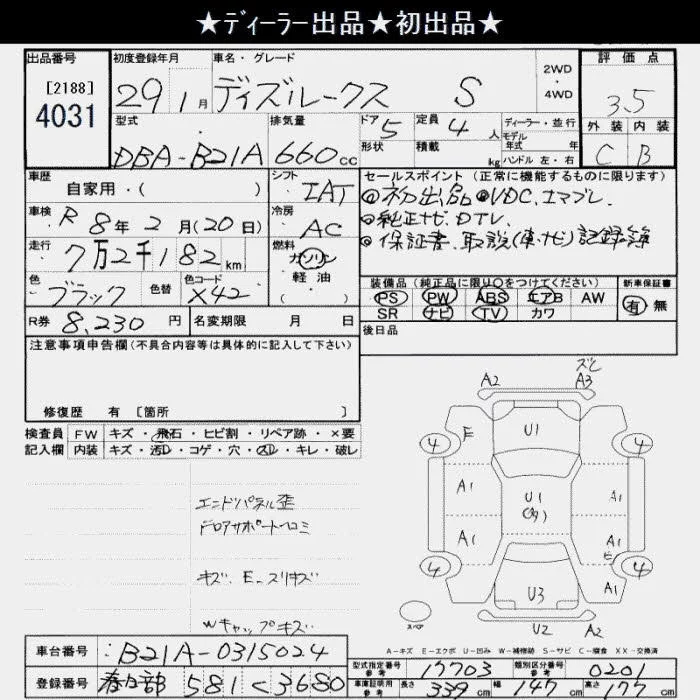 ★ディーラー出品★初出品★
出品番号
[2188]
4031
初度登録年月
29 1月
車名・グレード
ディズルークス S
2WD・4WD
評価点
3.5
外装 内装
C B
型式
DBA-B21A
排気量
660cc
ドア 5
形状
定員 4人
積載 kg
ディーラー・並行
モデル年式 年式
ハンドル 左・右
車歴
自家用・( )
シフト
IAT
セールスポイント(正常に機能するものに限ります)
◎初出品◎VDC.エマブレ.
◎純正ナビ.DTV.
◎保証書.取説(車・ナビ)記録簿
車検
R8年2月(20日)
冷房
AC
走行
7万2千182km
燃料
ガソリン・軽油・( )
色
ブラック
色替
色コード
X42
装備品(純正品に限り○をつけてください)
PS PW ABS エアB AW
SR ナビ TV カワ
新車保証書
有・無
R券 8,230円
名変期限 月 日
後日品
注意事項申告欄(不具合内容等は具体的に記入して下さい)
修復歴 有 [箇所 ]
検査員記入欄
FW キズ・飛石・ヒビ割・リペア跡・×要
内装 キズ・汚レ・コゲ・穴・スレ・キレ・破レ
エンドパネル歪
ドロアサポートヘコミ
キズ.E.スリキズ
Wキャップキズ
A2 A3
U1
4 E 4
A1 A1
U1
A1 A1
E
4 4
U3
スペア
U2 A2
A-キズ E-エクボ U-凹み W-補修跡 S-サビ C-腐食 XX-交換済
車台番号
B21A-0315024
登録番号
春日部 581 く 3680
型式指定番号 参考
17703
類別区分番号 参考
0201
車庫証明用 参考
長さ 339cm 幅 147cm 高さ 177cm